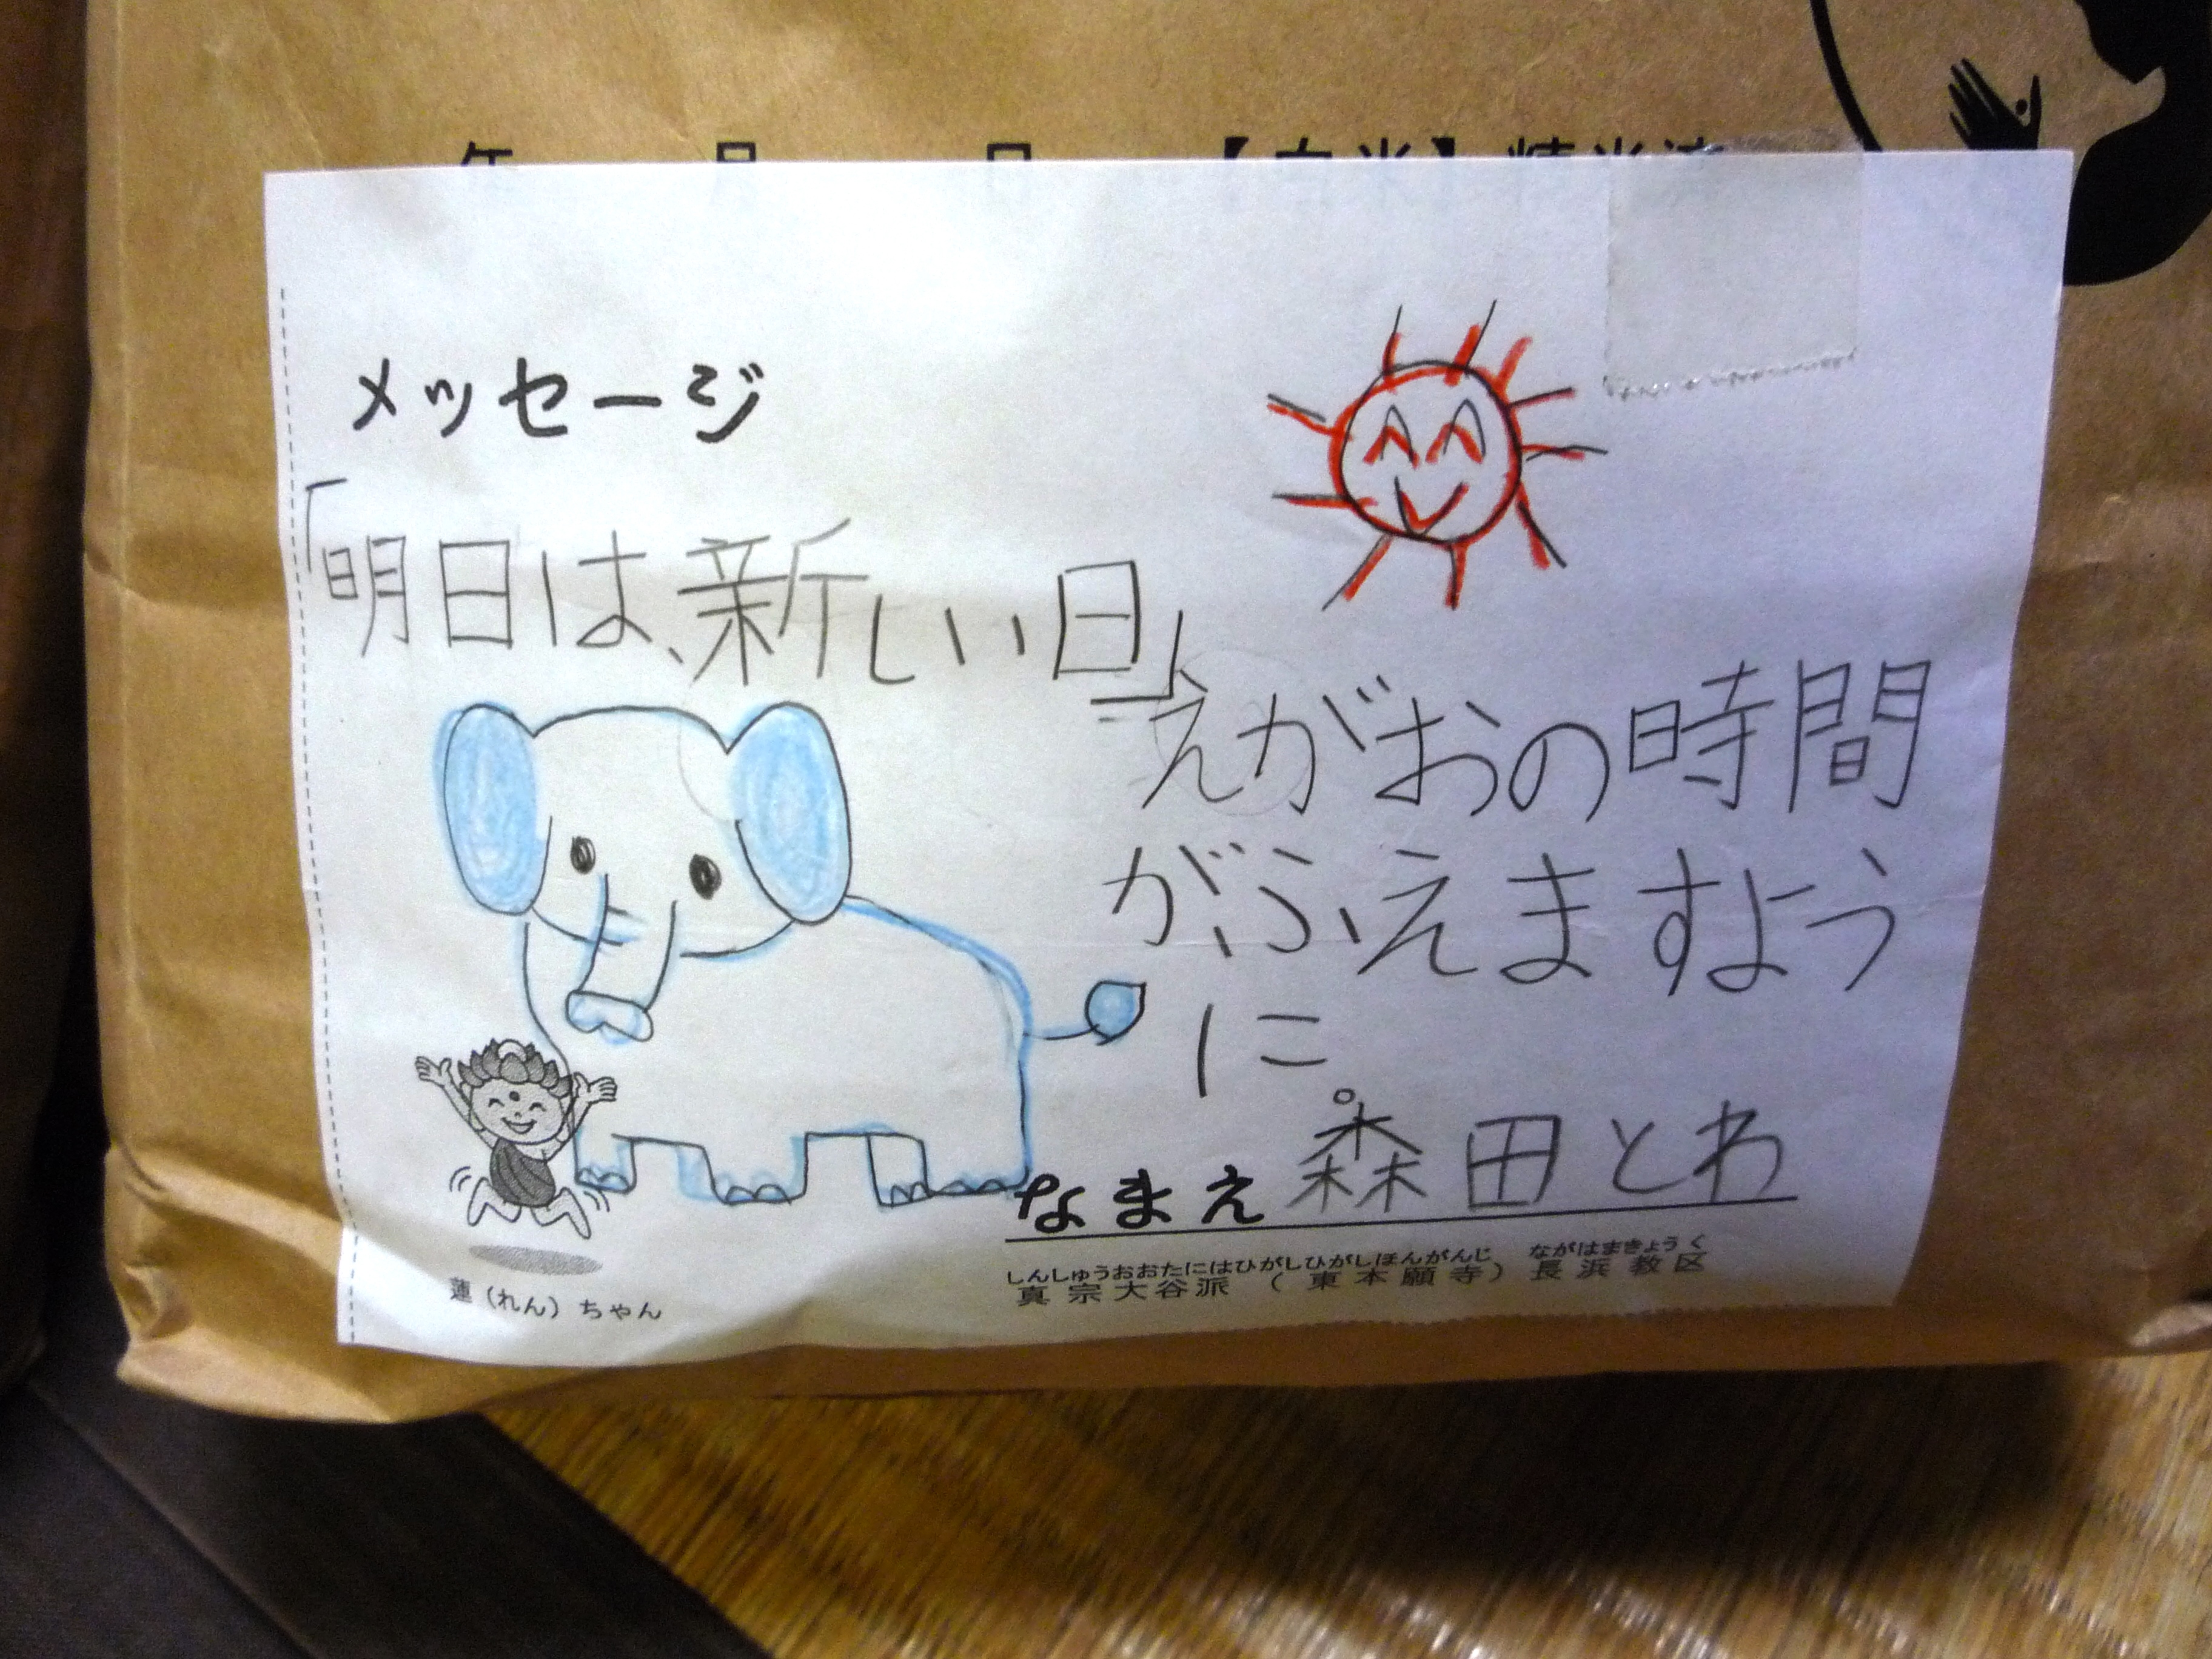 メッセージ
「明日は、新しい日」
えがおの時間
がふえますよう
に。
なまえ 森田とわ
しんしゅうおおたにはひがしひがしほんがんじ ながはまきょうく
真宗大谷派（東本願寺）長浜教区
蓮（れん）ちゃん